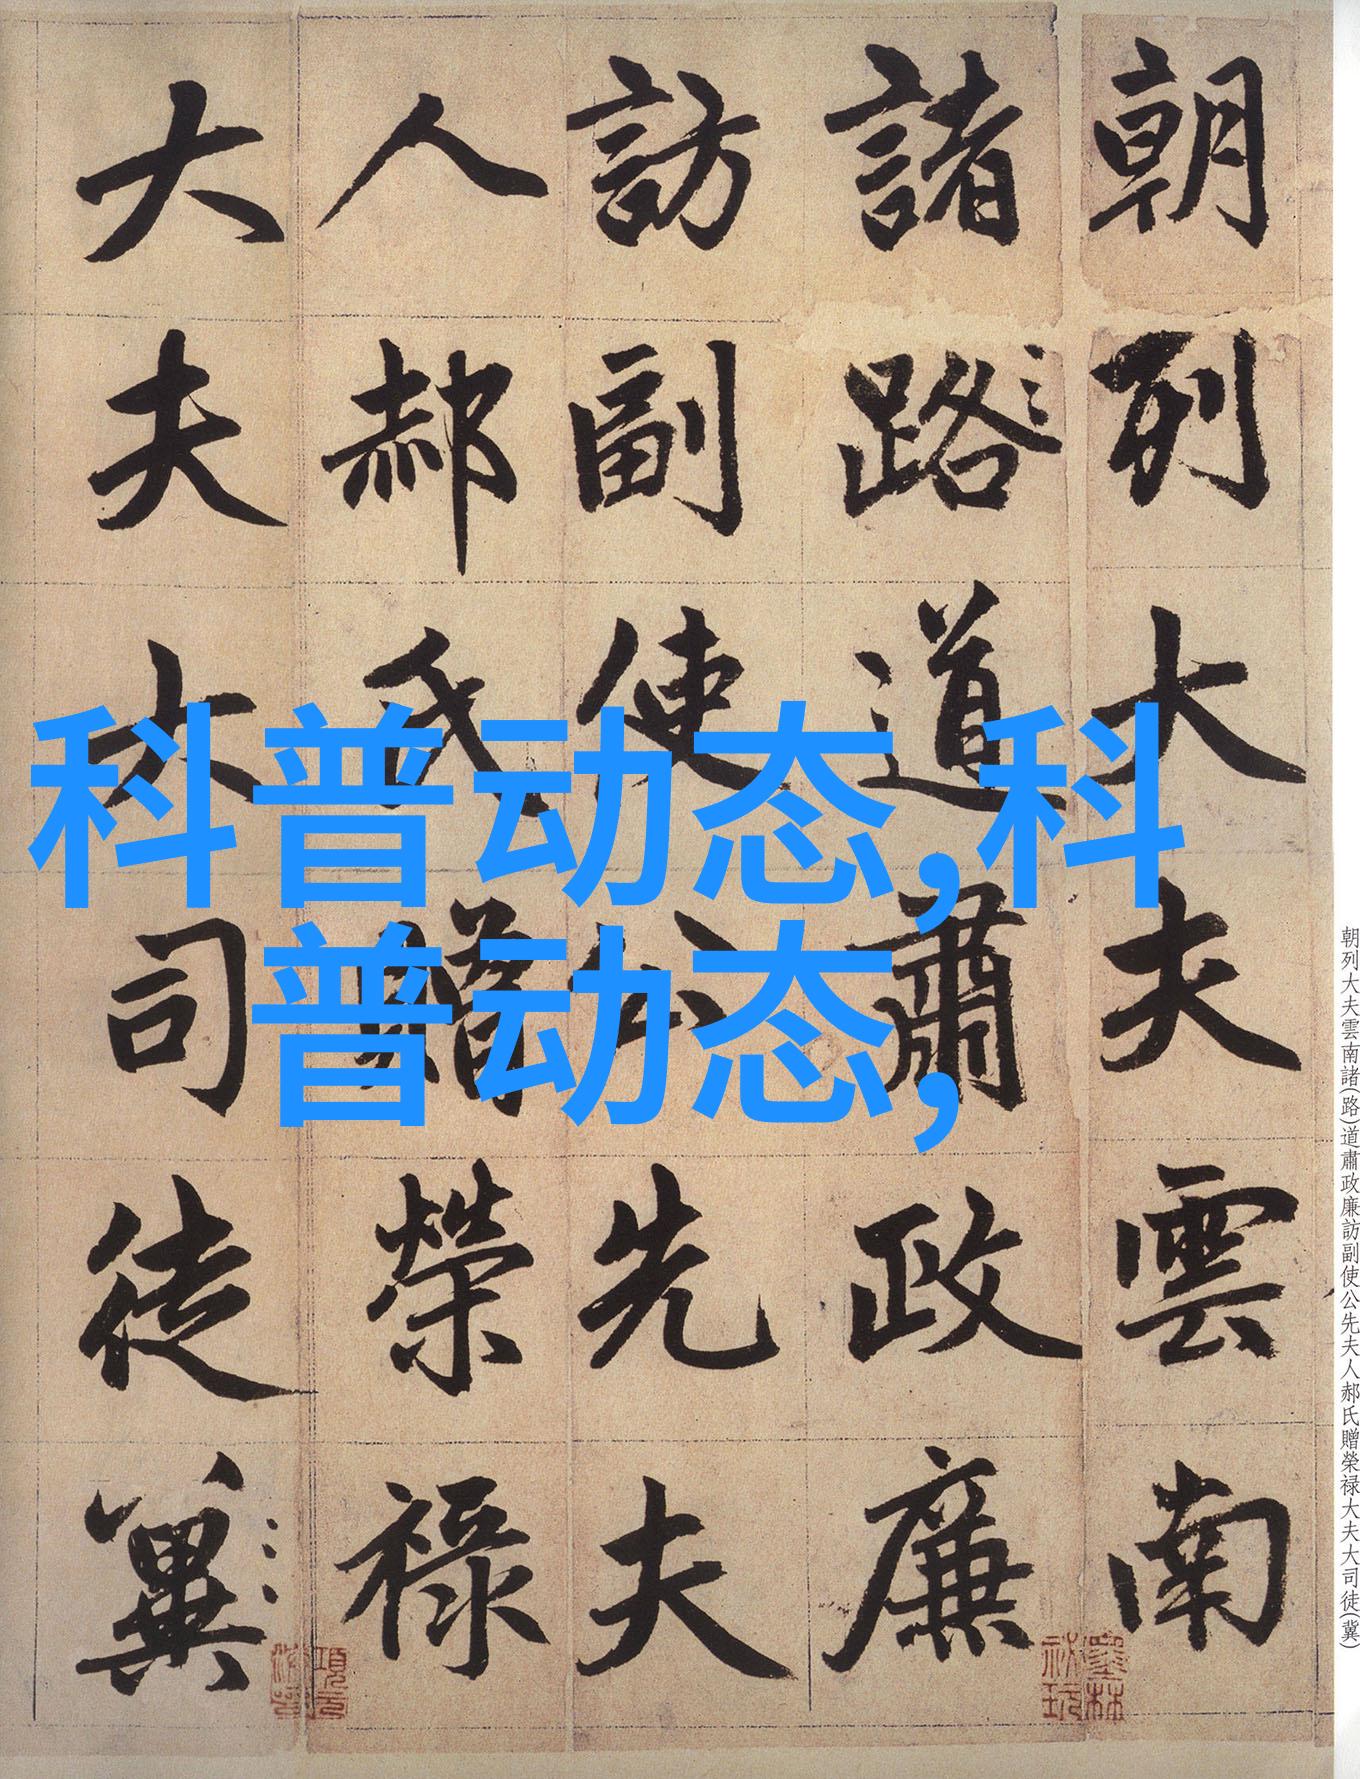 朝列大夫雲南
諸路道肅政廉
訪副使公先夫
人郝氏贈榮祿
大夫大司徒冀
科普动态,科
普动态,
朝列大夫雲南諸(路)道肅政廉訪副使公先夫人郝氏贈榮禄大夫大司徒(冀)